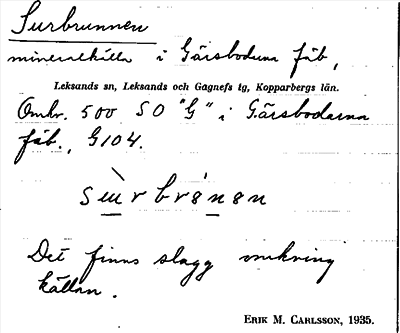 Surbrunnen
mineralkälla i Gärsbodarna fäb,
Leksands sn, Leksands och Gagnefs tg, Kopparbergs län.
Omkr. 500 SO "G" i Gärsbodarna
fäb., G104.
surbrønøn
Det finns slagg omkring
källan.
ERIK M. CARLSSON, 1935.